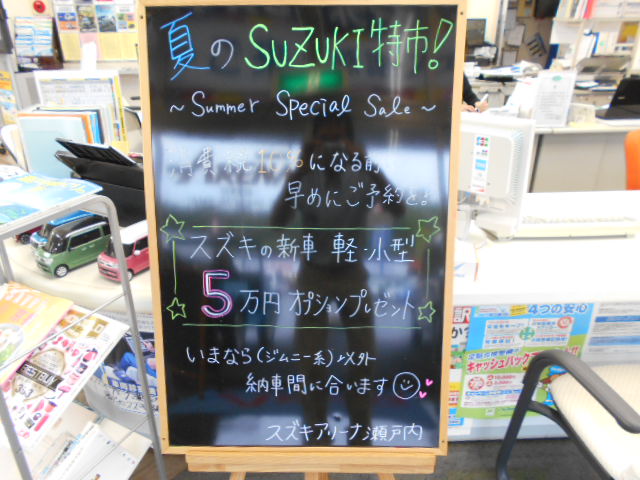 夏のSUZUKI特市!
~ Summer Special Sale ~
消費税10%になる前
早めにご予約を!
スズキの新車 軽・小型
5万円オプションプレゼント
いまなら(ジムニー系)以外
納車間に合います
スズキアリーナ瀬戸内
4つの安心
キャッシュバック